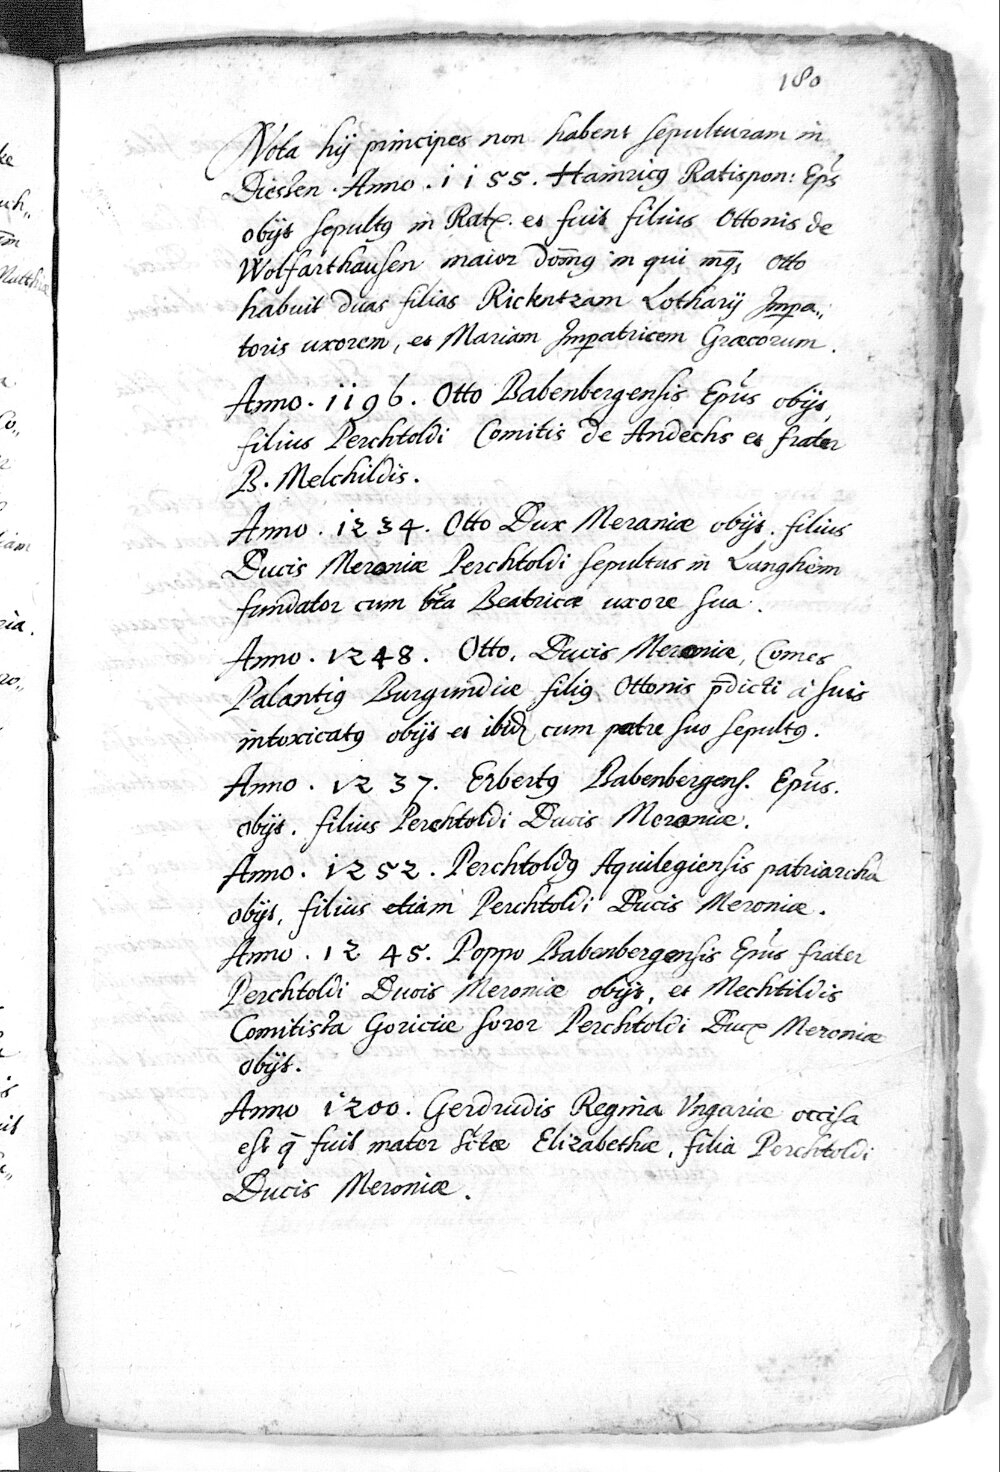 180
Nota hij principes non habent sepulturam in
Diessen. Anno. 1155. Hainricꝯ Ratispon: Epũs
obijt sepultꝯ in Rat. et fuit filius Ottonis de
Wolfarthausen maior dom̃ꝯ in qui Otto
habuit duas filias Rickntzam Lotharij Impa„
toris uxorem, et Mariam Imꝑatricem Græcorum.
Anno. 1196. Otto Babenbergensis Epũs obijt,
filius Perchtoldi Comitis de Andechs et frater
B. Melchildis.
Anno. 1234. Otto Dux Meraniæ obijt. filius
Ducis Meroniæ Perchtoldi sepultus in Langhem
fundator cum bta Beatricæ uxore sua.
Anno. 1248. Otto, Ducis Meroniæ, Comes
Palantiꝯ Burgundiæ filiꝯ Ottonis p̄dicti à suis
intoxicatꝯ obijt et ibid cum patre suo sepultꝯ.
Anno. 1237. Erbertꝯ Babenbergens. Epũs.
obijt. filius Perchtoldi Ducis Meroniæ.
Anno. 1252. Perchtoldꝯ Aquilegiensis patriarcha
obijt, filius etiam Perchtoldi Ducis Meroniæ.
Anno. 1245. Poppo Babenbergensis Epũs frater
Perchtoldi Ducis Meroniæ obijt, et Mechtildis
Comitissa Goriciæ soror Perchtoldi Duc Meroniæ
obijt.
Anno 1200. Gerdrudis Regina Vngariæ occisa
est q̄ fuit mater Sctæ Elizabethæ, filia Perchtoldi
Ducis Meroniæ.